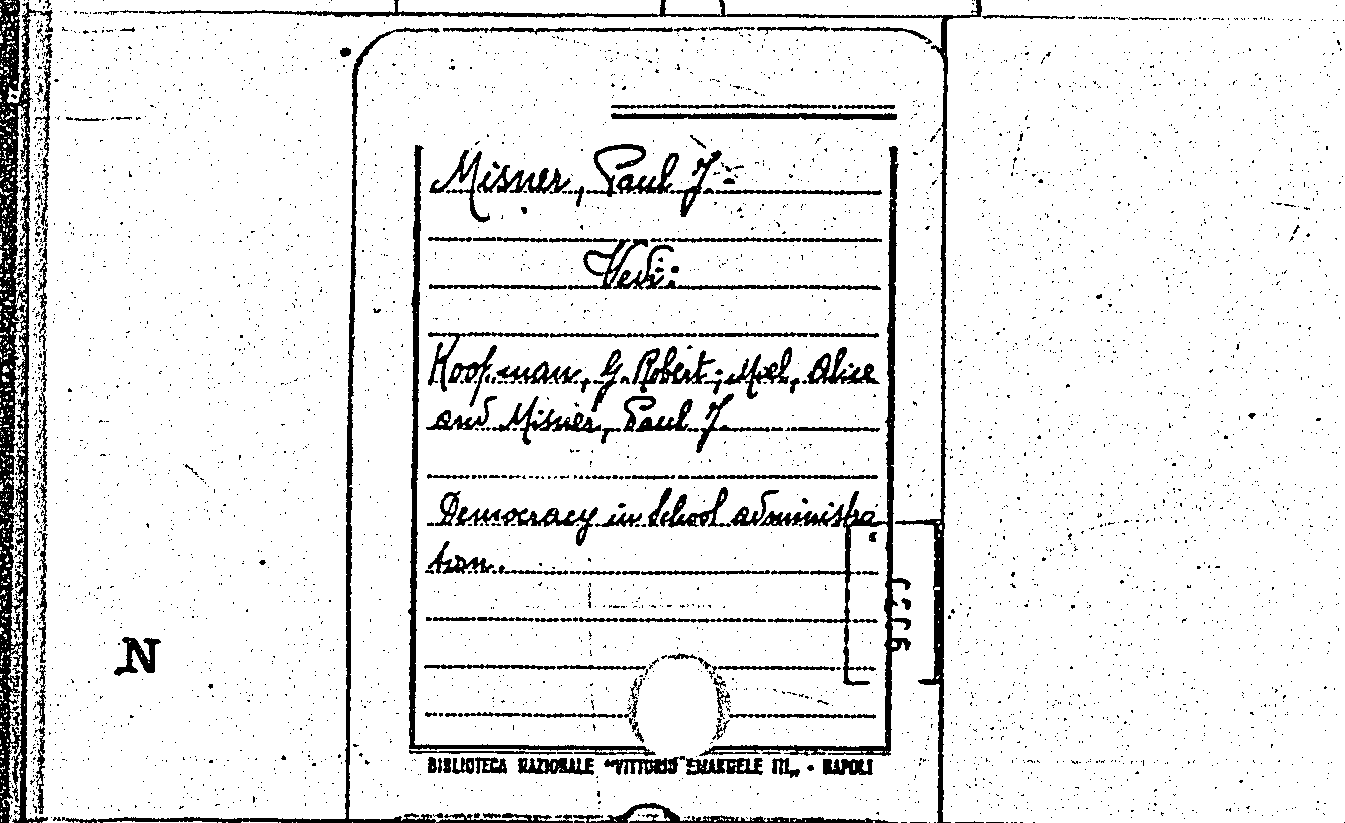 Misner, Paul J.-
Vedi:
Koopman, G. Robert; Miel, Alice
and Misner, Paul J.
Democracy in School administra
tion.
N
BIBLIOTECA NAZIONALE "VITTORIO EMANUELE III" - NAPOLI